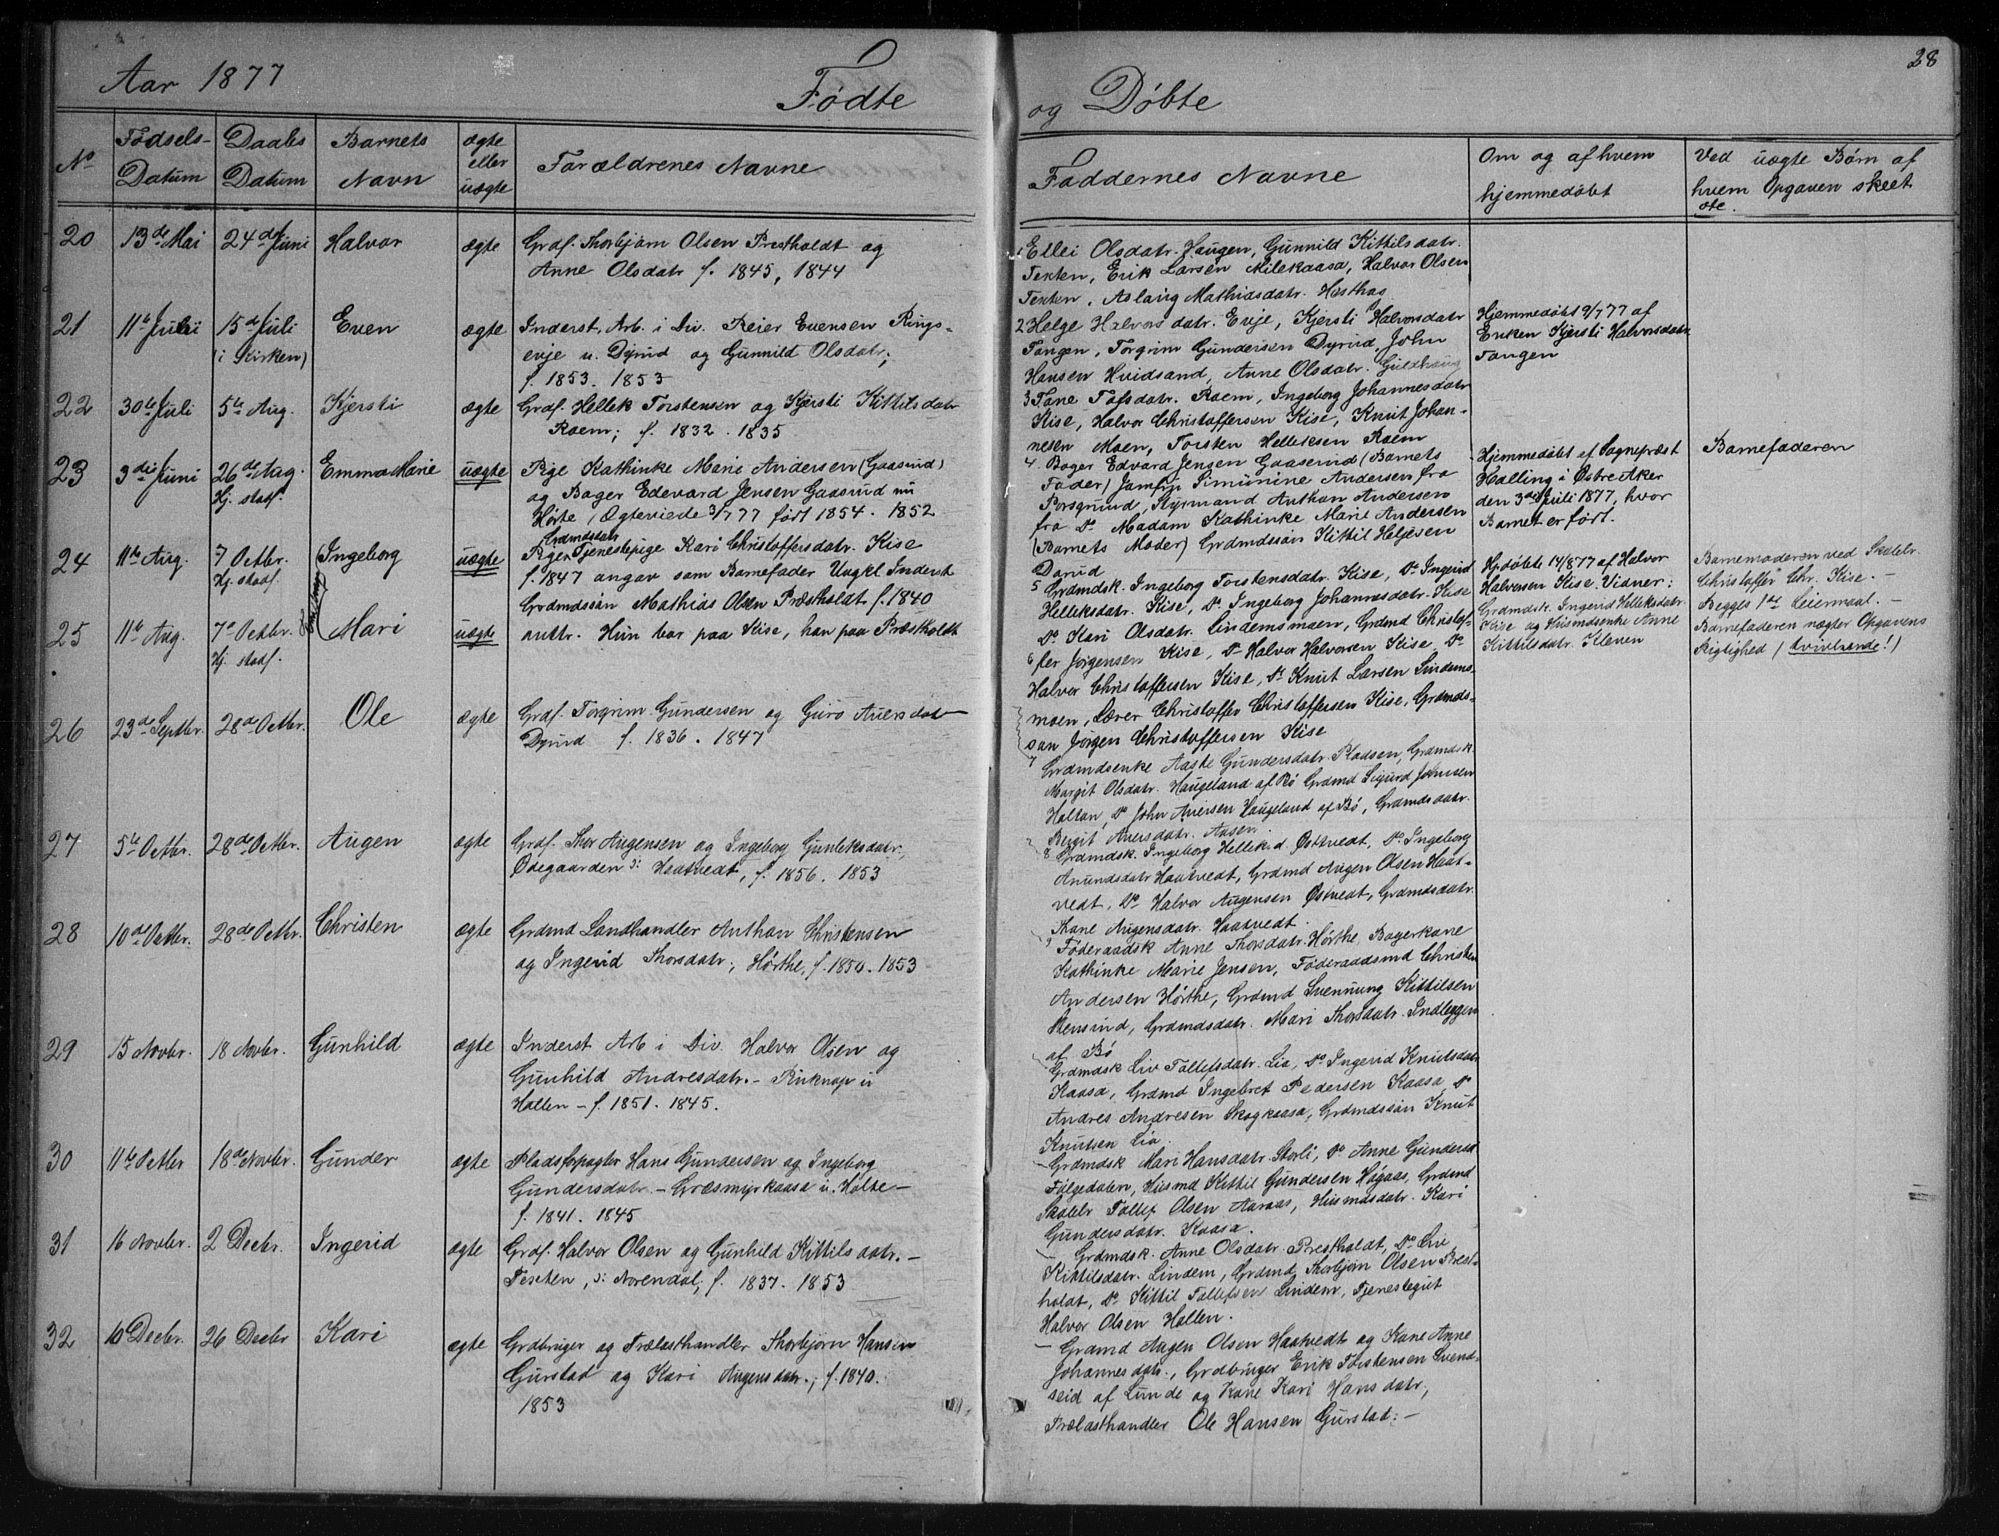 Aar 1877
Fødte
No
Fødsels-
Datum
Daabs
Datum
Barnets
Navn
ægte
eller
uægte
Forældrenes Navne
20 13de Mai 24de Juni Halvor ægte Grdf. Thorbjørn Olsen Prestholdt og
Anne Olsdatr f. 1845, 1844
21 11te Juli 15de Juli Even ægte Inderst, Arb. i Div. Reier Evensen Rings-
(i Kirken) evje u. Dyrud og Gunnild Olsdatr;
f. 1853. 1853
22 30te Juli 5te Aug. Kjersti ægte Grdf. Hellek Torstensen og Kjersti Kittilsdatr
Roem; f. 1832. 1835
23 3die Juni 26de Aug. Emma Marie uægte Pige Kathinke Marie Andersen (Gaasrud)
Hj. stadf. og Bager Edevard Jensen Gaasrud nu
Hörte, Ægteviede 3/7 77 født 1854. 1852
Grdmdsdatr
24 11te Aug. 7 Octbr. Ingeborg uægte Pigen Tjenestepige Kari Christoffersdatr. Kise
Hj. stadf. f. 1847 angav som Barnefader Ungkl Inderst
Grdmdssøn Mathias Olsen Præstholdt f. 1840
Tvillinger
25 11te Aug. 7de Octbr. Mari uægte anttr. Hun bor paa Kise, han paa Præstholdt
Hj. stadf.
26 23de Septbr. 28de Octbr. Ole ægte Grdf. Torgrim Gundersen og Guro Aversdatr
Dyrud f. 1836. 1847
27 5te Octbr. 28de Octbr. Augen ægte Grdf. Thor Augensen og Ingeborg Gunleksdatr,
Ødegaarden ɔ: Haatvedt, f. 1856. 1853
28 10de Octbr. 28de Octbr. Christen ægte Grdmd Landhandler Anthon Christensen
og Ingerid Thorsdatr; Hørthe, f. 1850. 1853
29 15 Novbr. 18 Novbr. Gunhild ægte Inderst Arb i Div. Halvor Olsen og
Gunhild Andresdatr. – Rirknap u
Hollen – f. 1851. 1845.
30 11te Octbr 18de Novbr. Gunder ægte Pladsforpagter Hans Gundersen og Ingeborg
Gundersdatr. – Græsmyrkaasa u. Holte –
f. 1841. 1845
31 16 Novbr. 2 Decbr. Ingerid ægte Grdf. Halvor Olsen og Gunhild Kittilsdatr. –
Texten, ɔ: Norendal; f. 1837. 1853
32 10 Decbr. 26 Decbr Kari ægte Grdbruger og Trælasthandler Thorbjørn Hansen
Gurstad og Kari Augensdatr.; f. 1840.
1853
28
og Døbte
Faddernes Navne
Om og af hvem
hjemmedøbt
Ved uægte Børn af
hvem Opgaven skeet
etc.
1 Ellei Olsdatr. Haugen, Gunnild Kittilsdatr.
Texten, Erik Larsen Milekaasa, Halvor Olsen
Texten, Aslaug Mathisdatr. Hesthag
2 Helge Halvorsdatr. Evje, Kjersti Halvorsdatr
Tangen, Torgrim Gundersen Dyrud, John
Hansen Hvidsand, Anne Olsdatr. Guldhaug
Hjemmedøbt 9/7 77 af
Enken Kjersti Halvorsdatr.
Tangen
3 Tone Tofsdatr. Roem, Ingeborg Johannesdatr
Kise, Halvor Christoffersen Kise, Knut Johan-
nesen Moen, Torsten Helleksen Roem
4. Bager Edvard Jensen Gaaserud (Barnets
Fader) Jomfru Simimine Andersen fra
Porsgrund, Styrmand Anthon Andersen
fra Do Madam Kathinke Marie Andersen
(Barnets Moder) Grdmdssøn Kittil Helgesen
Dorud
Hjemmedøbt af Sognepræst
Halling i Østre Aker
den 3die Juli 1877, hvor
Barnet er født.
Barnefaderen
5 Grdmdsk. Ingeborg Torstensdatr. Kise, Do Ingerid
Helleksdatr. Kise, Do Ingeborg Johannesdatr. Kise
Do Kari Olsdatr. Lindemsmoen, Grdmd Christof-
6 fer Jørgensen Kise, Do Halvor Halvorsen Kise Do
Halvor Christoffersen Kise, Do Knut Larsen Lindems-
moen, Lærer Christoffer Christoffersen Kise, Grdmds-
søn Jørgen Christoffersen Kise
Hjdøbte 14/8 77 af Halvor
Halvorsen Kise Vidner:
Grdmdsk. Ingerid Helleksdatr.
Kise og Husmdsenke Anne
Kittilsdatr. Kleven
Barnemoderen ved Skolelr.
Christoffer Chr. Kise. –
Begges 1ste Leiermaal. –
Barnefaderen nægter Opgavens
Rigtighed (tvivlsomt!)
7 Grdmdsenke Aaste Gundersdatr. Pladsen, Grdmdsk.
Margit Olsdatr. Haugeland af Bø Grdmd Sigurd Jonnsen
Holtan, Do John Aversen Haugeland af Bø, Grdmdsdatr.
Bergit Aversdatr. Aasen.
8 Grdmdsk. Ingeborg Hellek.d. Østvedt, Do Ingeborg
Anundsdatr Haatvedt, Grdmd Augen Olsen Haat-
vedt, Do Halvor Augensen Østvedt, Grdmdsdatr.
Kane Augensdatr. Haatvedt.
Føderaadsk. Anne Thorsdatr. Hörthe, Bagerkone
Kathinke Marie Jensen, Føderaadsmd Christen
Andersen Hörthe, Grdmd Svennung Kittilsen
Stensrud, Grdmdsdatr. Mari Thorsdatr. Indleggen
af Bø
Grdmdsk Liv Tollefsdatr. Lia, Do Ingerid Knutsdatr.
Kaasa, Grdmd Ingebret Pedersen Kaasa, Do
Andres Andresen Skogkaasa, Grdmdssøn Knut
Knutsen Lia.
Grdmdsk Mari Hansdatr. Storli, Do Anne Gundersd
Følgedalen, Husmd Kittil Gundersen Høgaas, Grdmd
Skolelr Tollef Olsen Aaraas, Husmdsdatr. Kari
Gundersdatr. Kaasa.
Grdmdsk. Anne Olsdatr. Prestholdt, Do Liv
Kittilsdatr. Lindem, Grdmd Thorbjørn Olsen Prest-
holdt, Do Kittil Tollefsen Lindem, Tjenestegut
Halvor Olsen Hollen.
Grdmd Augen Olsen Haatvedt og Kone Anne
Johannesdatr., Grdbruger Erik Torstensen Svend-
seid af Lunde og Kone Kari Hansdatr,
Trælasthandler Ole Hansen Gurstad: –